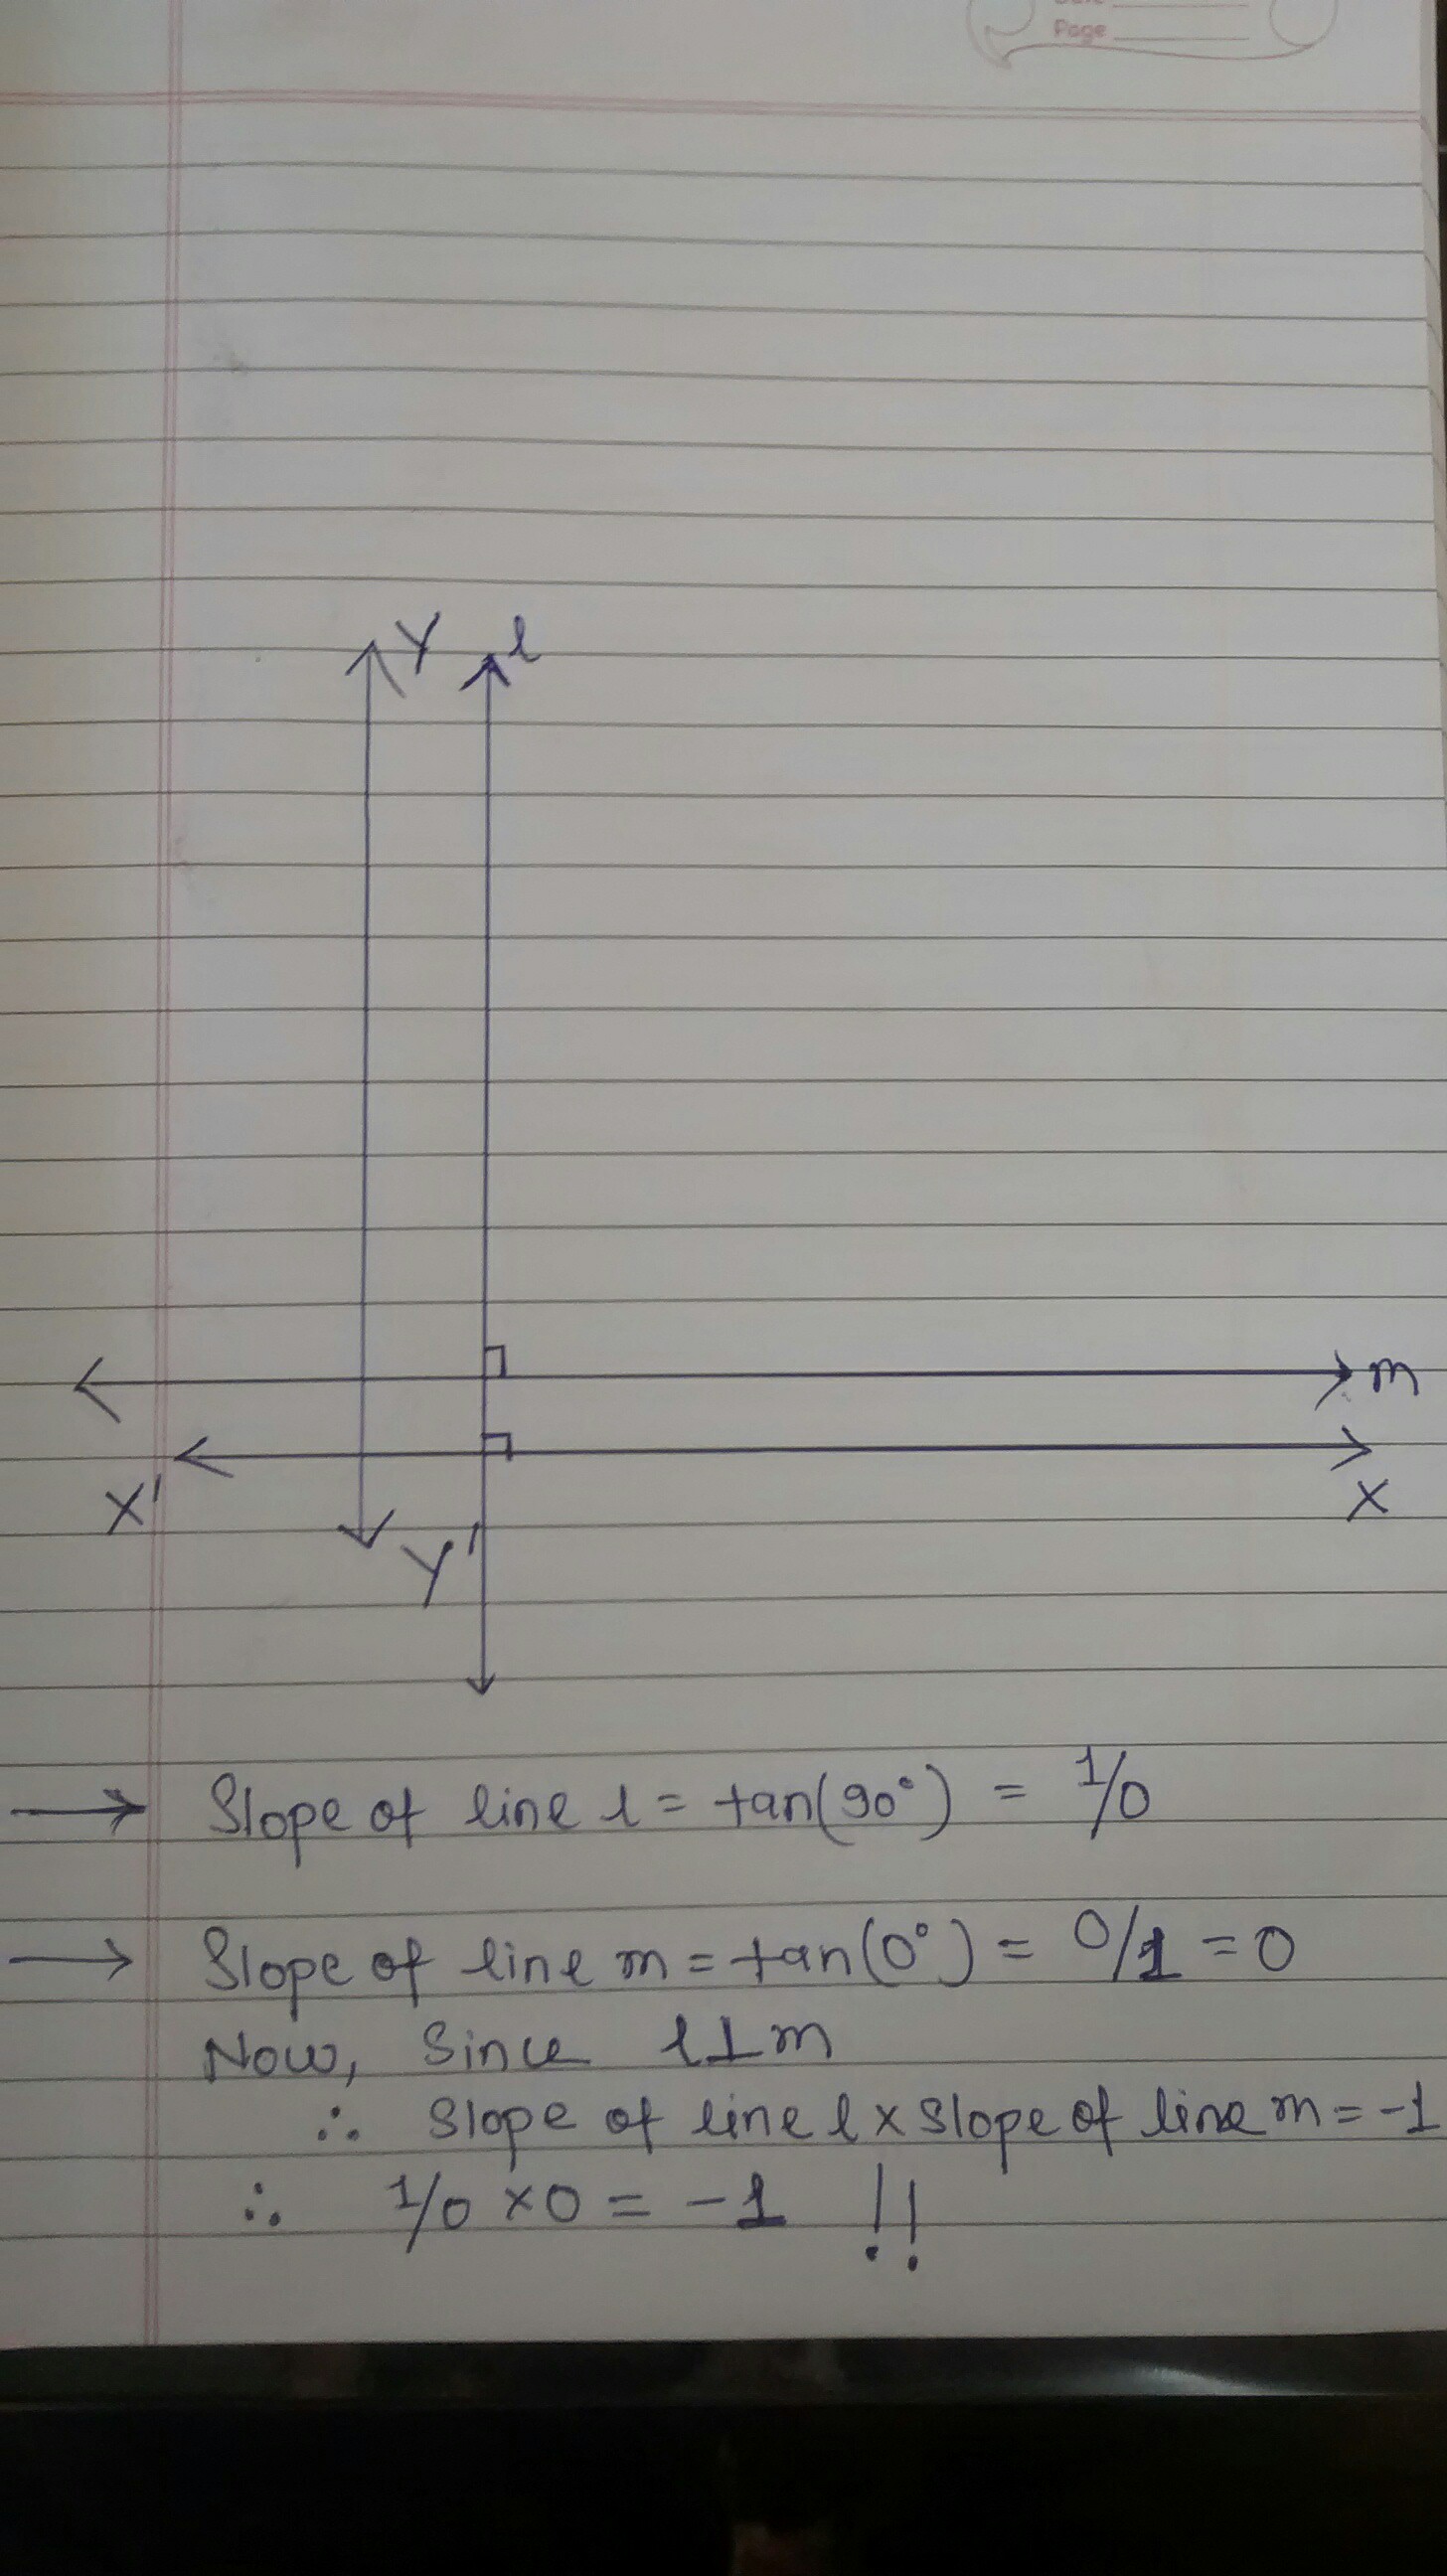 Page
Y l
m
X' X
Y'
→ Slope of line l = tan(90°) = 1/0
→ Slope of line m = tan(0°) = 0/1 = 0
Now, Since l ⊥ m
∴ Slope of line l x Slope of line m = -1
∴ 1/0 x 0 = -1 !!